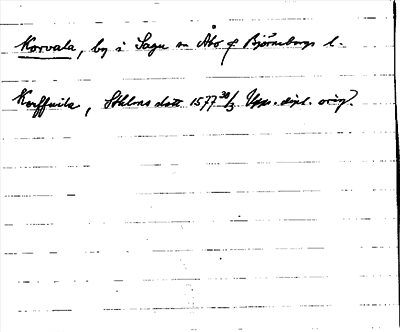 Korvala, by i Sagu sn Åbo o Björneborgs l.
Korffuila, Sthlms slott 1577 30/3 Upps. dipl. orig.